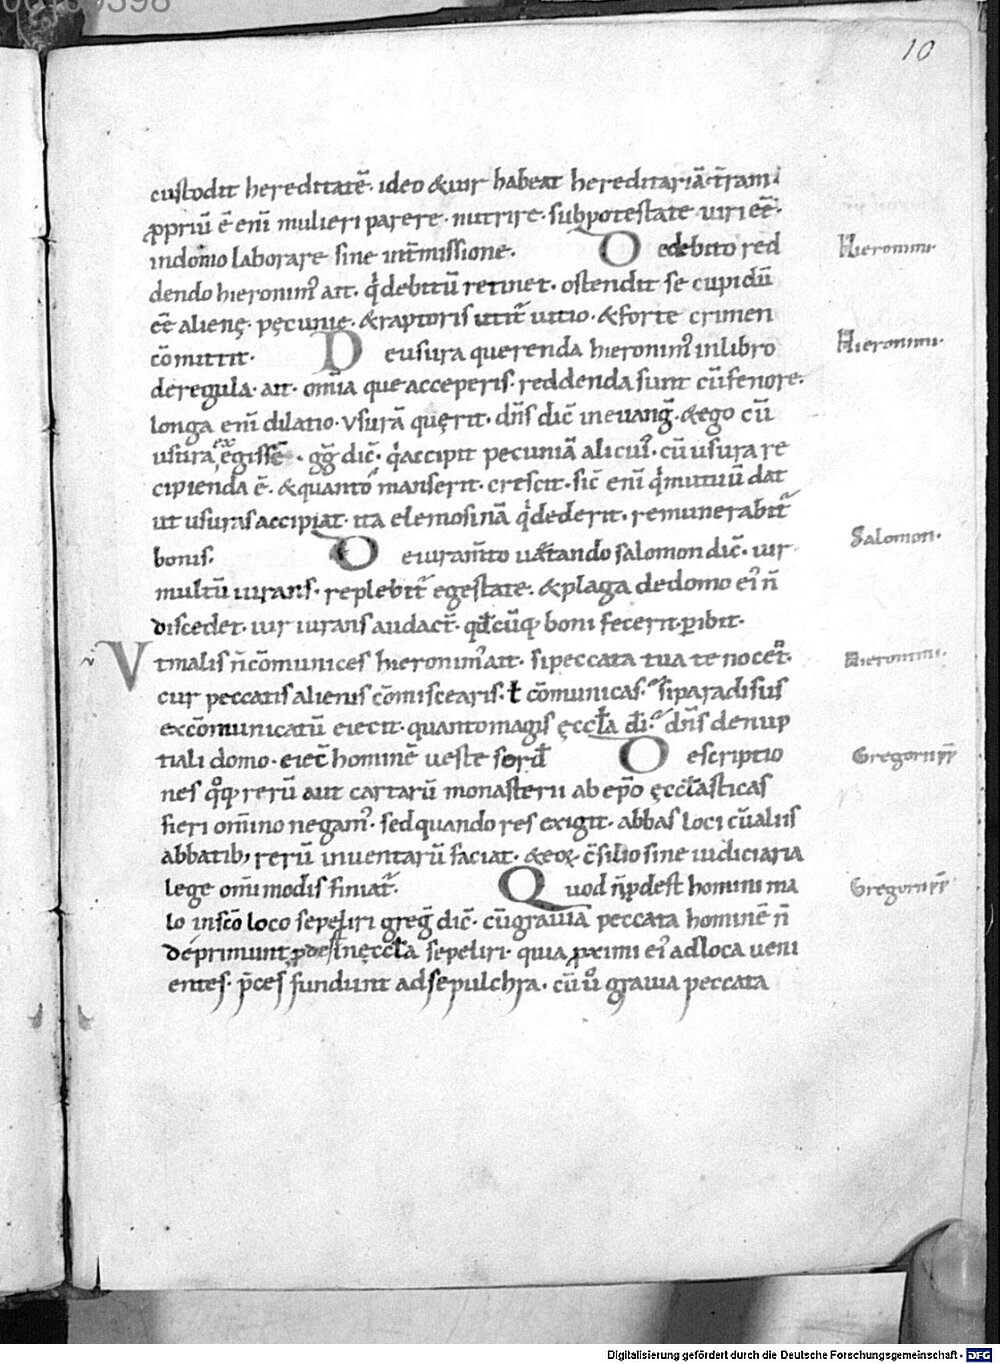 10
custodit hereditatē. ideo & uir habeat hereditariā t̄ram.
ꝓpriū ē eni̅ mulieri parere. nutrire. sub potestate uiri eē.
in domo laborare sine int̄missione. De debito red
Hieronimi.
dendo hieronimꝰ ait. qͥ debitū retinet. ostendit se cupidū
eē alienę pęcunię. & raptoris utit᷑ uitio. & forte crimen
cōmittit. De usura querenda hieronimꝰ in libro
Hieronimi.
de regula. ait. om̄ia que acceperis. reddenda sunt cū fenore.
longa eni̅ dilatio. vsurā quęrit. dn̄s dic̄ in euang̅. & ego cū
usura exegissē. gg̅ dic̄. qͥ accipit pecuniā alicuiꝰ. cū usura re
cipienda ē. & quanto manserit. crescit. sic̄ eni̅ qͥ mutuū dat
ut usuras accipiat. ita elemosinā qͥ dederit. remunerabit᷑
bonis. De iuram̅to uitando salomon dic̄. uir
Salomon.
multū iurans. replebit᷑ egestate. & plaga de domo eiꝰ n̄
discedet. uir iurans audact̄. qđcūq; boni fecerit. ꝑibit.
Vt malis n̄ cōmunices hieronimꝰ ait. si peccata tua te nocet᷑.
Hieronimi.
cur peccatis alienis cōmiscearis. ł cōmunicas. si paradisus
excōmunicatū eiecit. quanto magis ęccl̅a di̅. dn̄s de nup
tiali domo. eiec̄ hominē ueste sord̅ Descriptio
Gregorii pp̅
nes qͦq; rerū aut cartarū monasterii ab ep̅o ęccl̅asticas
fieri om̅ino negamꝰ. sed quando res exigit. abbas loci cū aliis
abbatib; rerū inuentarū faciat. & eoꝝ c̄silio siue iudiciaria
lege om̅imodis finiat᷑. Quod n̄ ꝓdest homini ma
Gregorii pp̅
lo in sc̄o loco sepeliri greg̅ dic̄. cū grauia peccata hominē n̄
deprimunt ꝓdest in ęccl̅a sepeliri. quia ꝓximi eiꝰ ad loca ueni
entes. p̄ces fundunt ad sepulchra. cū uͦ grauia peccata
Digitalisierung gefördert durch die Deutsche Forschungsgemeinschaft - DFG